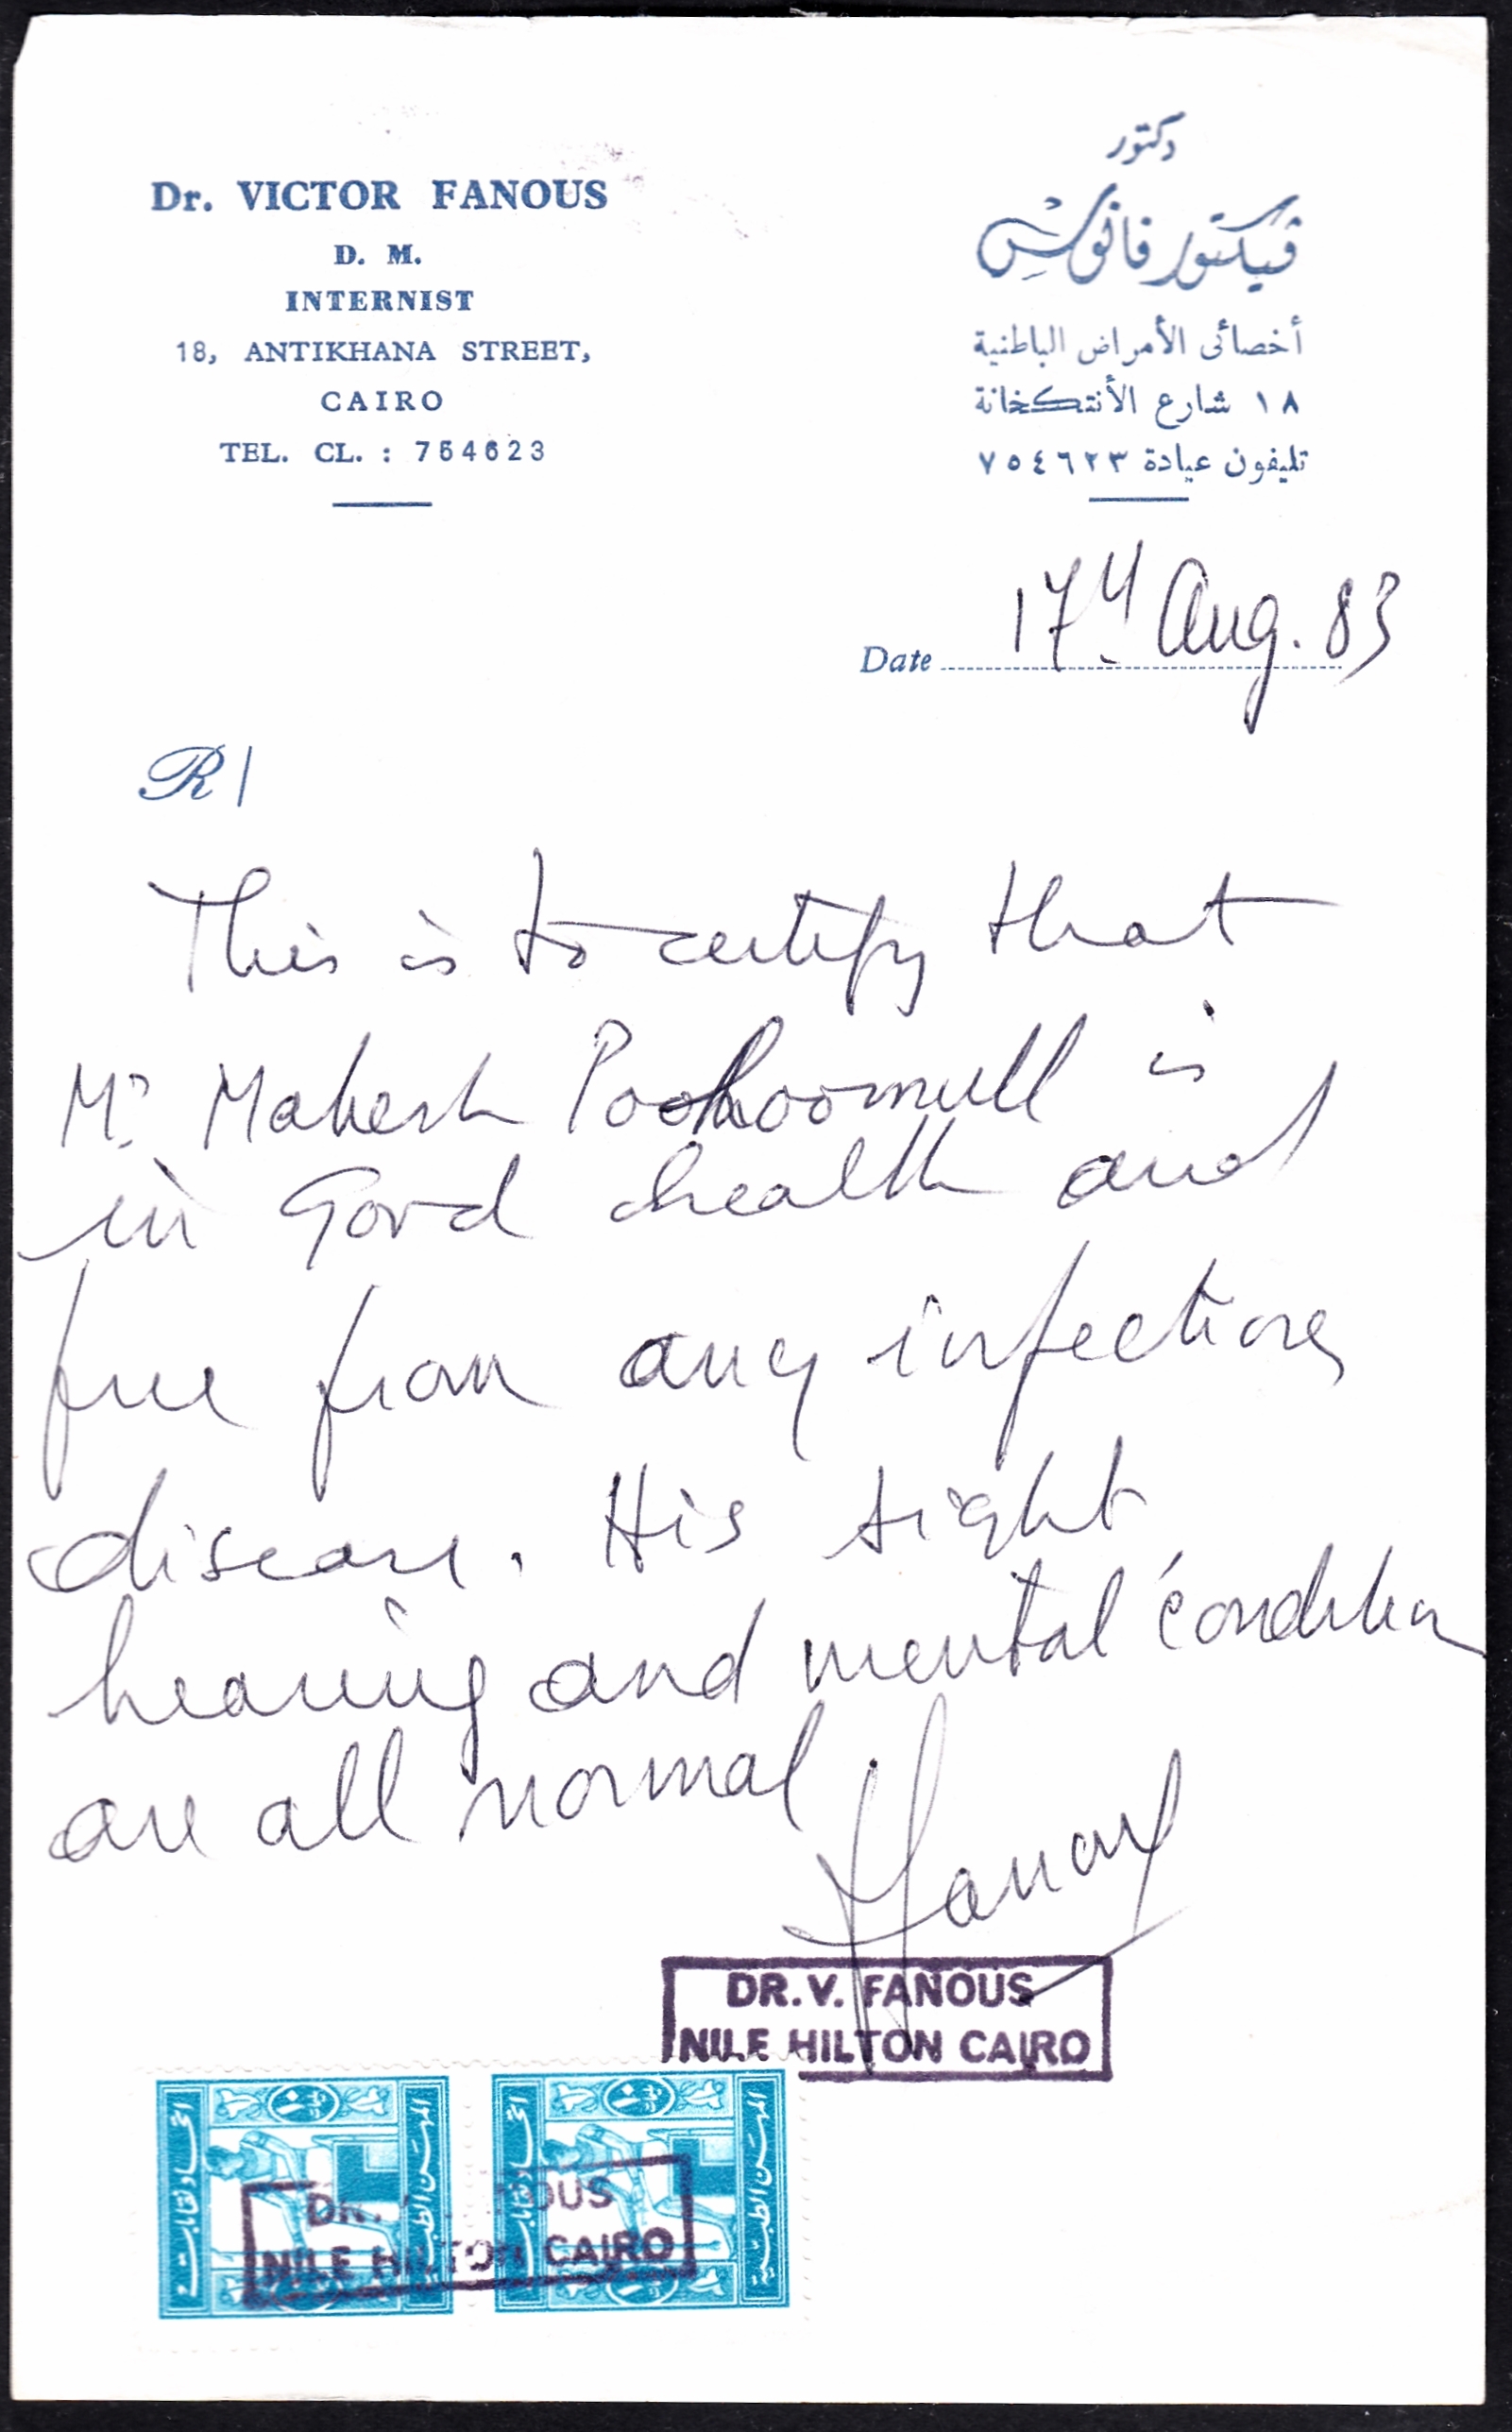 Dr. VICTOR FANOUS
D. M.
INTERNIST
18, ANTIKHANA STREET,
CAIRO
TEL. CL. : 754623
دكتور
ڤيكتور فانوس
أخصائى الأمراض الباطنية
١٨ شارع الأنتكخانة
تليفون عيادة ٧٥٤٦٢٣
Date 17th Aug. 83
R/
This is to certify that
Mr Mahesh Poohoomull is
in Good health and
free from any infectious
disease. His sight
hearing and mental condition
are all normal
Fanous
DR. V. FANOUS
NILE HILTON CAIRO
اتحاد نقابات المهن الطبية
اتحاد نقابات المهن الطبية
DR. OUS
NILE HILTON CAIRO